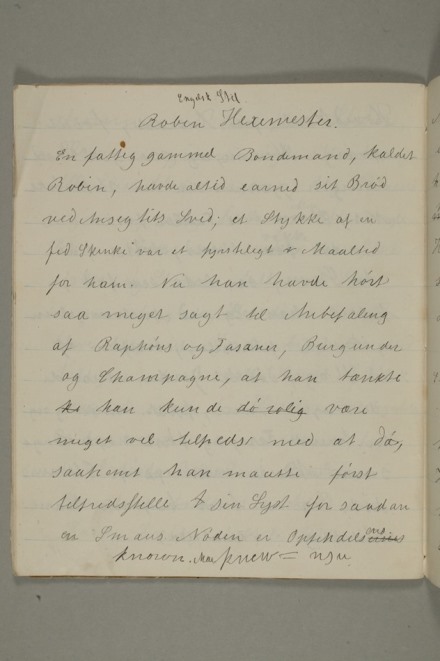 Engelsk Stil.
Robin Hexemester.
En fattig gammel Bondemand, kaldet
Robin, havde altid earned sit Brød
ved Ansigtits Sved; et Stykke af en
fed Skinke var et fyrsteligt Maaltid
for ham. Nu han havde hørt
saa meget sagt til Anbefaling
af Raphöns og Fasaner, Burgunder
og Champagne, at han tænkte
han kunde dö rolig være
meget vel tilfreds med at dö,
saafremt han maatte först
tilfredsstille sin Lyst for saadan
en Smaus Nöden er Opfindelsens
known. knew = nyu.